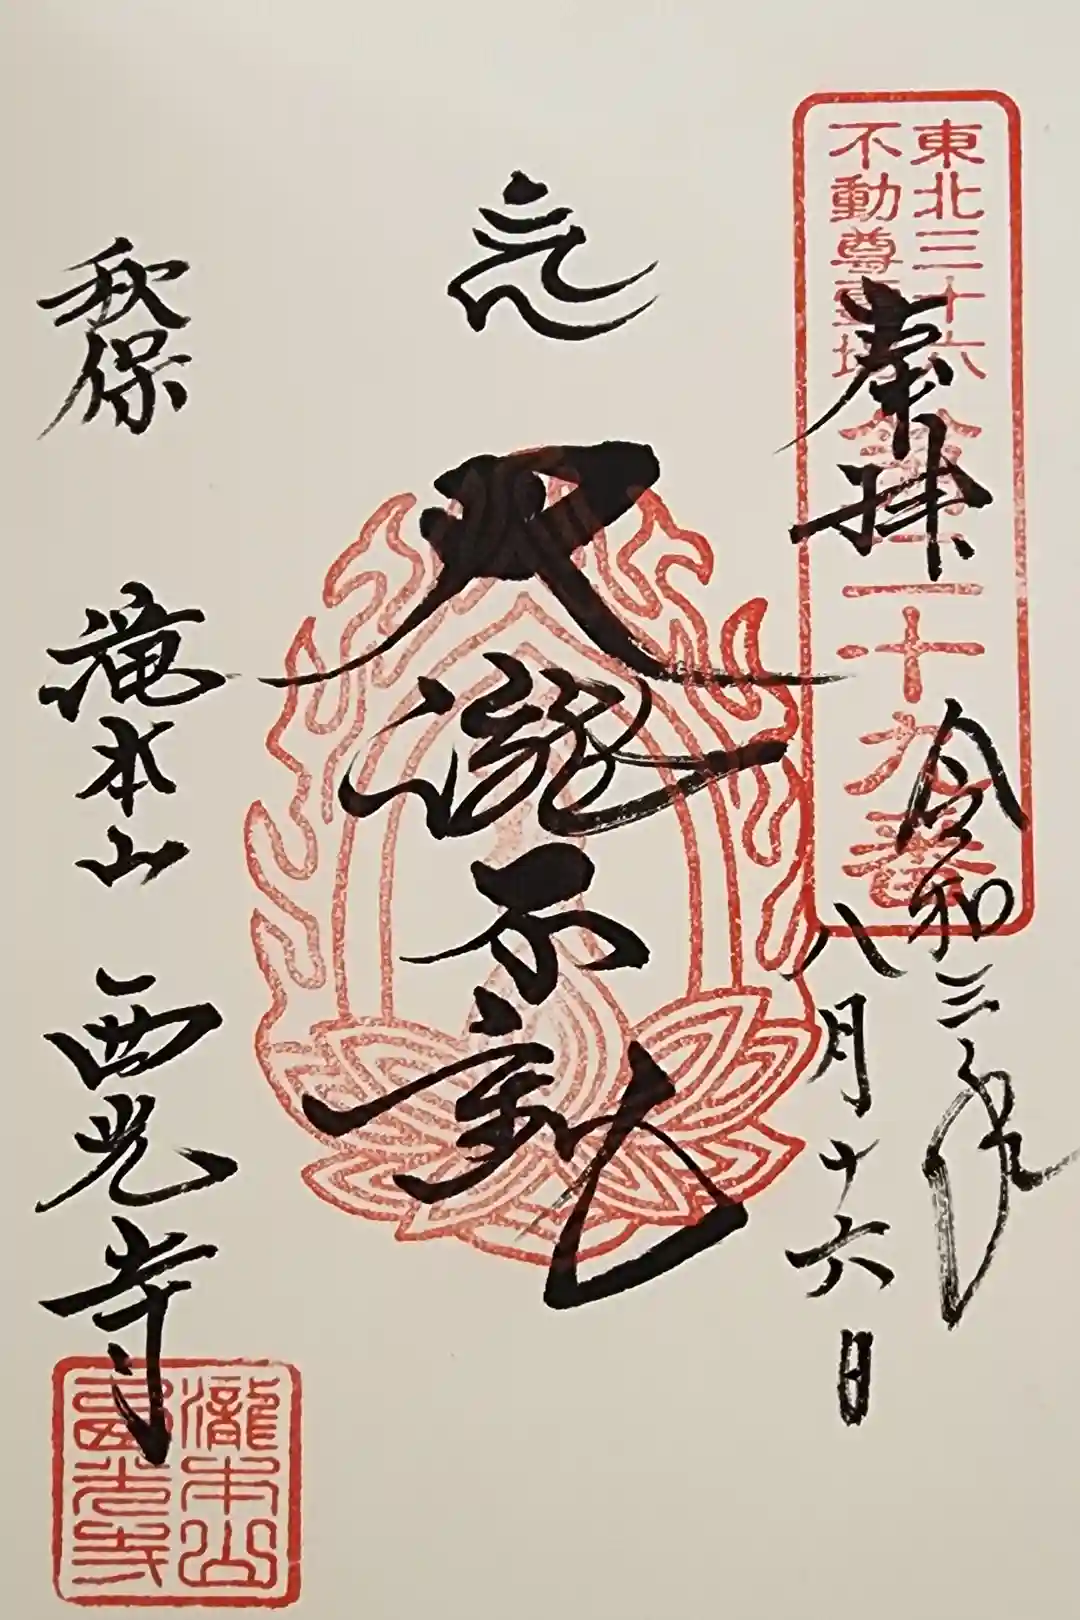 東北三十六
不動尊霊場
第二十九番
奉拝
令和三年
八月十六日
大瀧不動
秋保
滝本山
西光寺
瀧本山
西光寺